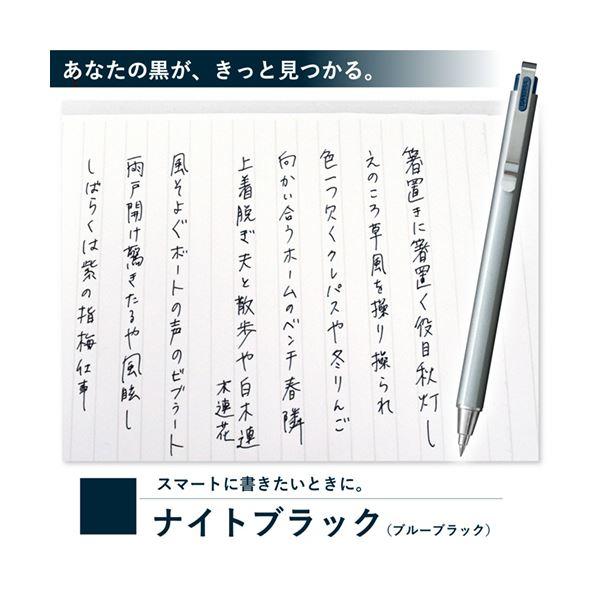 あなたの黒が、きっと見つかる。
箸置きに箸置く役目秋灯し
えのころ草風を操り操られ
色一つ欠くクレパスや冬りんご
向かい合うホームのベンチ春隣
上着脱ぎ夫と散歩や白木連
木連花
風そよぐボートの声のビブラート
雨戸開け驚きたるや風眩し
しばらくは紫の指梅仕事
スマートに書きたいときに。
ナイトブラック(ブルーブラック)